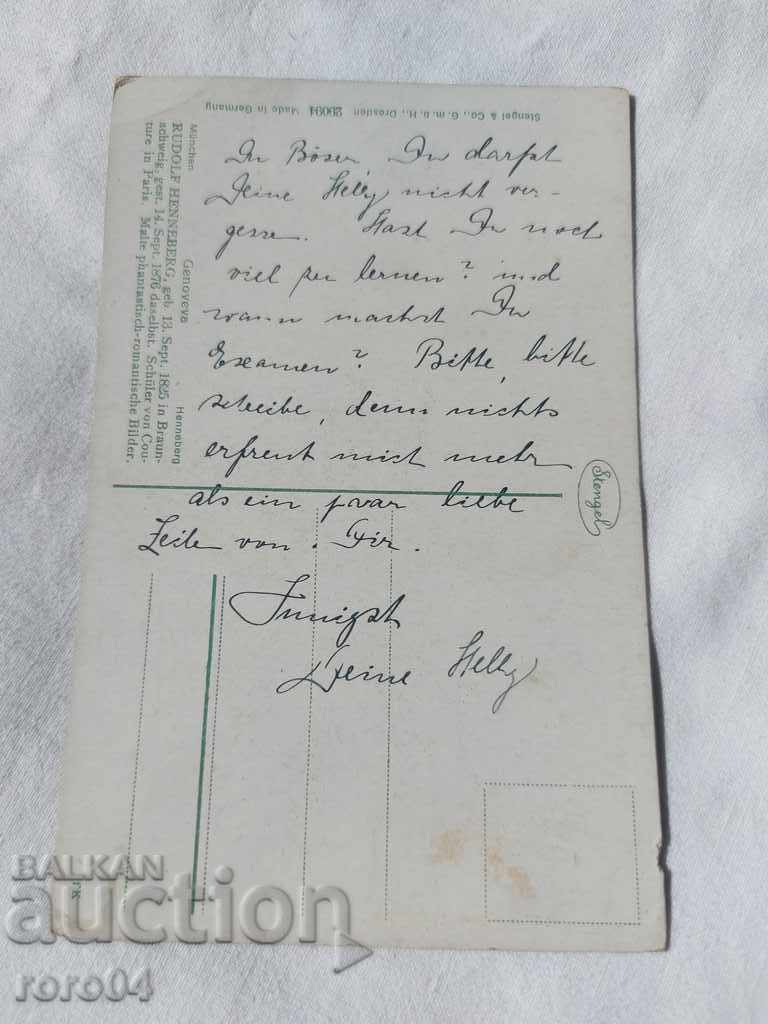 Du Böser, Du darfst
Deine Helly nicht ver-
gesse. Hast Du noch
viel zu lernen? und
wann machst Du
Examen? Bitte, bitte
schreibe, denn nichts
erfreut mich mehr
als ein paar liebe
Zeile von Dir.
Innigst
Deine Helly
Stengel & Co., G. m. b. H., Dresden 29094 Made in Germany
München Genoveva Henneberg
RUDOLF HENNEBERG, geb. 13. Sept. 1825 in Braun-
schweig, gest. 14. Sept. 1876 daselbst. Schüler von Cou-
ture in Paris. Malte phantastisch-romantische Bilder.
Stengel
BALKAN
auction
roro04